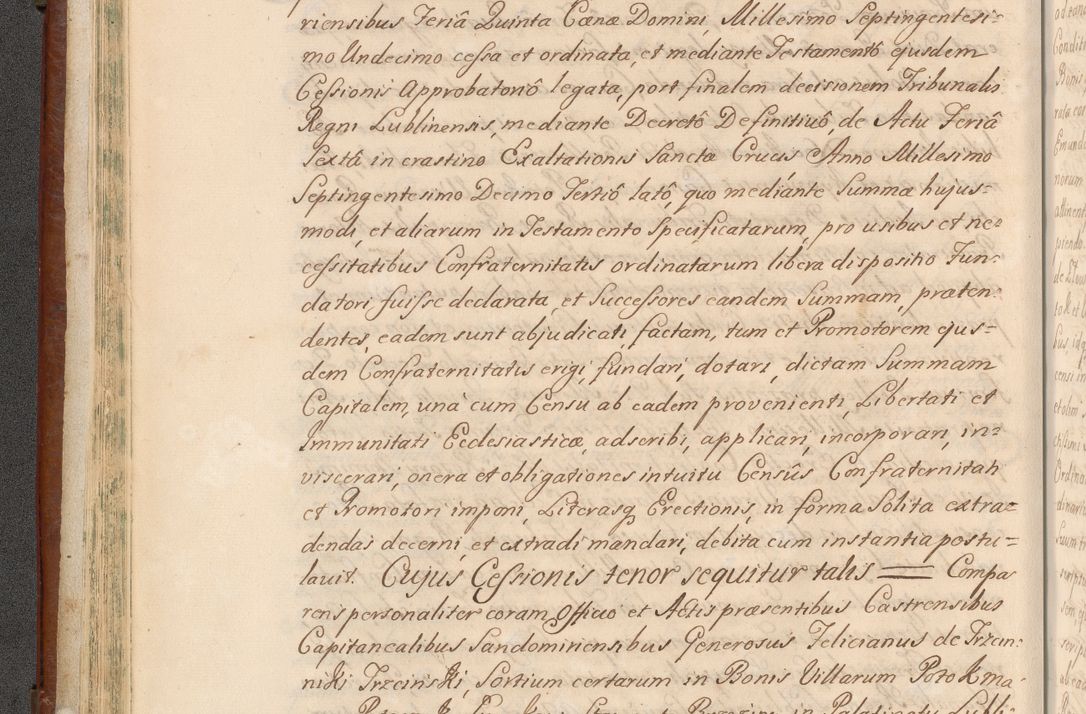 riensibus Feriâ Quinta Cœnæ Domini Millesimo Septingentesi-
mo Undecimo cessa et ordinata, et mediante Testamentô ejusdem
Cessionis Approbatoriô legata, post finalem decisionem Tribunalis
Regni Lublinensis, mediante Decretô Definitivô, de Actu Feriâ
Sextâ in crastino Exaltationis Sanctæ Crucis Anno Millesimo
Septingentesimo Decimo Tertiô latô, quo mediante Summæ hujus=
modi, et aliarum in Testamento Specificatarum, pro usibus et ne=
cessitatibus Confraternitatis ordinatarum libera dispositio Fun=
datori fuisse declarata, et Successores eandem Summam, præten=
dentes, eadem sunt abjudicati, factam, tum et Promotorem ejus=
dem Confraternitatis erigi, fundari, dotari, dictam Summam
Capitalem, unà cum Censu ab eadem provenienti, Libertati et
Immunitati Ecclesiasticæ, adscribi, applicari, incorporari, in=
viscerari, onera et obligationes intuitu Censûs Confraternitati
et Promotori imponi, Literasq Erectionis, in forma Solita extra=
dendas decerni, et extradi mandari, debita cum instantia postu=
lavit. Cujus Cessionis tenor sequitur talis = Compa
rens personaliter coram Officio et Actis præsentibus Castrensibus
Capitanealibus Sandomiriensibus Generosus Felicianus de Trzcin=
niki Trzcinski, Sortium certarum in Bonis Villarum Potok ma-